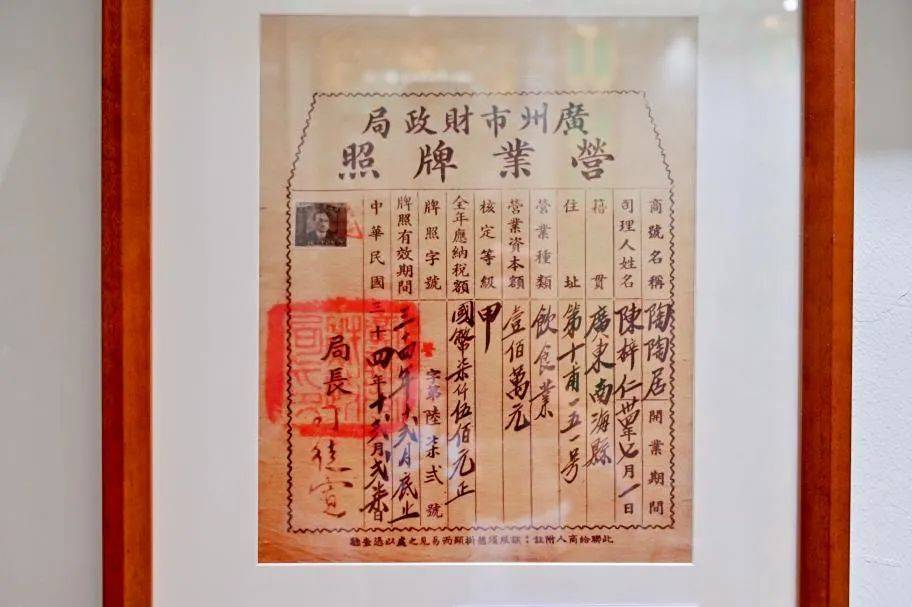 廣州市財政局
營業牌照
商號名稱 陶陶居 開業期間
司理人姓名 陳梓仁 卅四年七月一日
籍貫 廣東南海縣
住址 第十甫一五一号
營業種類 飲食業
營業資本額 壹佰萬元
核定等級 甲
全年應納稅額 國幣柒仟伍佰元正
牌照字號 字第陸柒弍號
牌照有效期間 三十四年十弍月底止
中華民國三十四年十弍月弍
局長
此聯給商人附註：該照須懸掛顯而易見之處以憑查驗